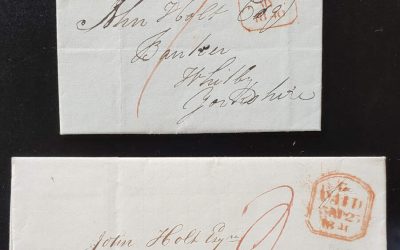 John Holt Esqr
Banker
Whitby
Yorkshire
PAID
1840
John Holt Esqre